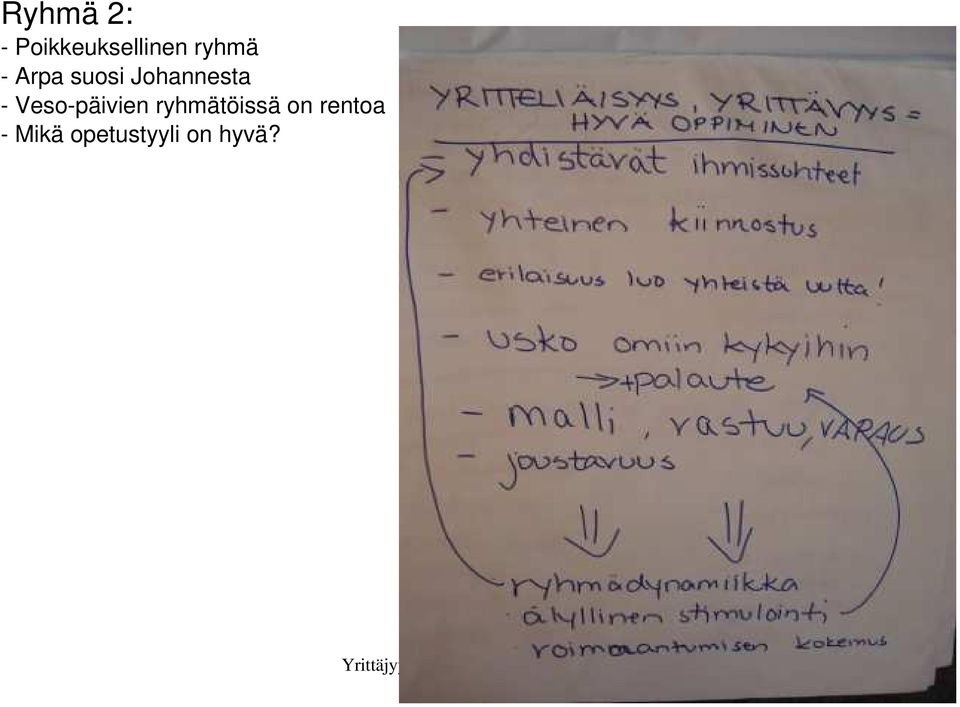 Ryhmä 2:
- Poikkeuksellinen ryhmä
- Arpa suosi Johannesta
- Veso-päivien ryhmätöissä on rentoa
- Mikä opetustyyli on hyvä?
YRITTELIÄISYYS, YRITTÄVYYS =
HYVÄ OPPIMINEN
- yhdistävät ihmissuhteet
- yhteinen kiinnostus
- erilaisuus luo yhteistä uutta!
- usko omiin kykyihin
→+palaute
- malli, rastuu, VARAUS
- joustavuus
ryhmädynamiikka
älyllinen stimulointi
voimaantumisen kokemus